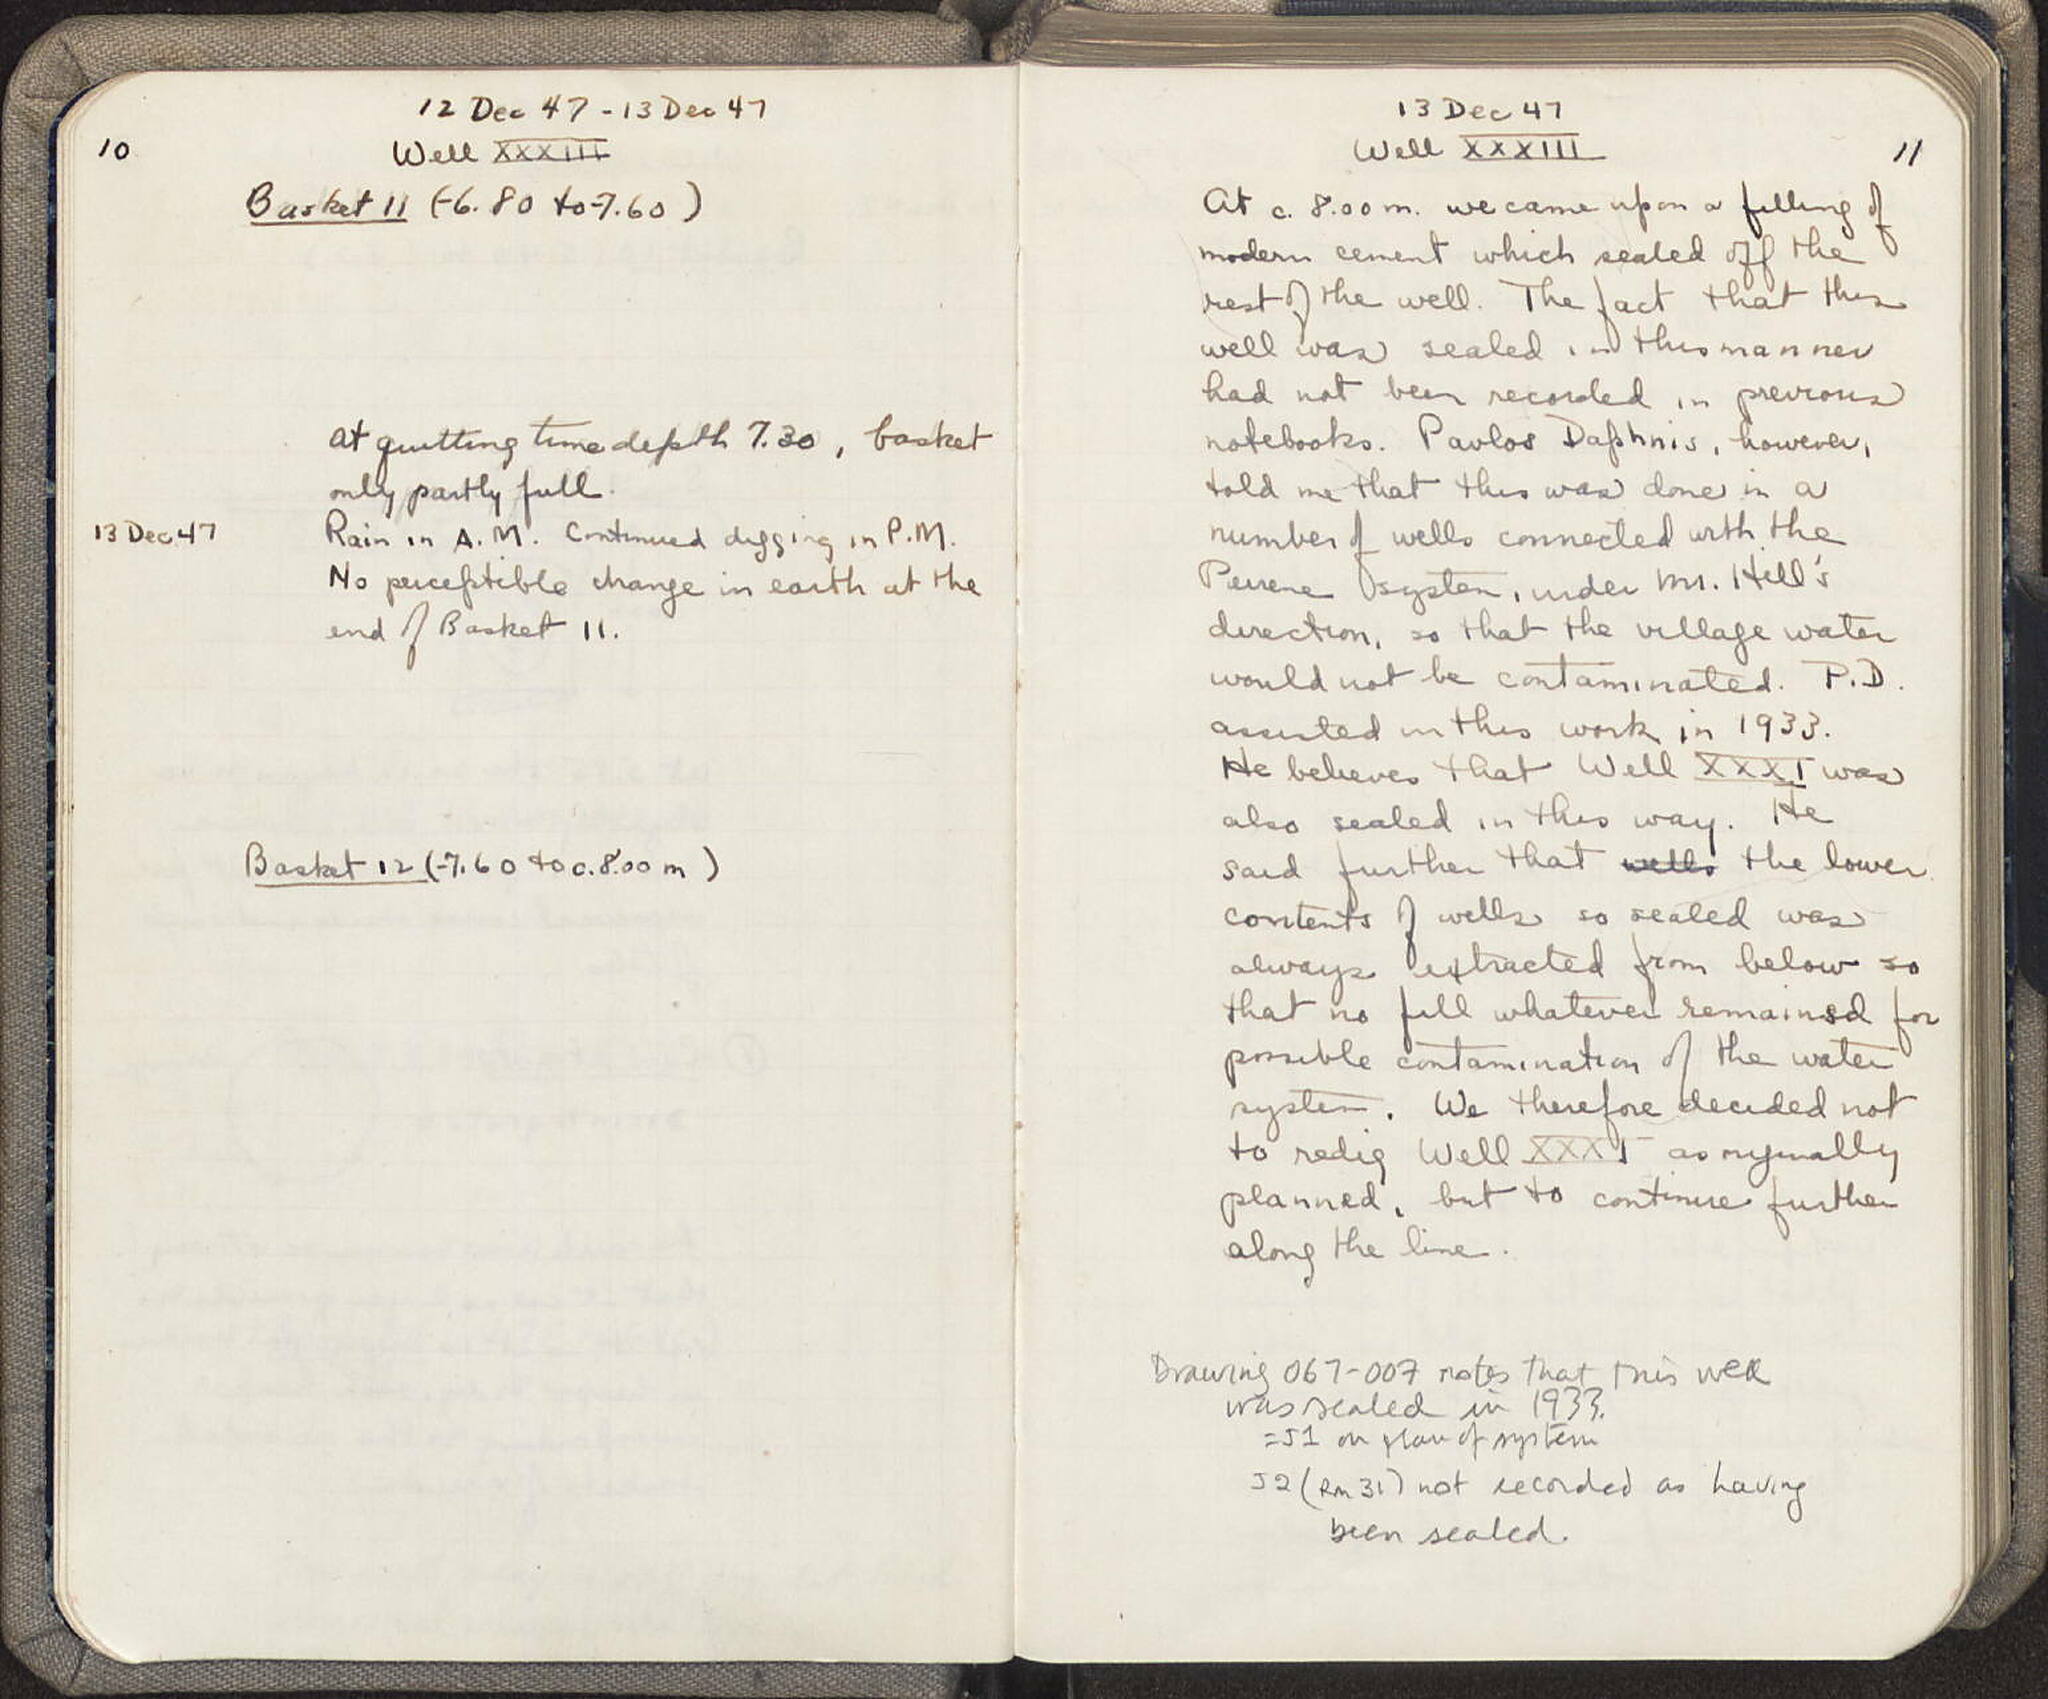 12 Dec 47 - 13 Dec 47
10
Well XXXIII
Basket 11 (-6.80 to -7.60)
At quitting time depth 7.30, basket
only partly full.
13 Dec. 47
Rain in A.M. Continued digging in P.M.
No perceptible change in earth at the
end of Basket 11.
Basket 12 (-7.60 to c. 8.00 m)
13 Dec 47
Well XXXIII
11
At c. 8.00 m. we came upon a filling of
modern cement which sealed off the
rest of the well. The fact that this
well was sealed in this manner
had not been recorded in previous
notebooks. Pavlos Daphnis, however,
told me that this was done in a
number of wells connected with the
Peirene system, under Mr. Hill's
direction, so that the village water
would not be contaminated. P.D.
assisted in this work in 1933.
He believes that Well XXXI was
also sealed in this way. He
said further that wells the lower
contents of wells so sealed was
always extracted from below so
that no fill whatever remained for
possible contamination of the water
system. We therefore decided not
to redig Well XXXI as originally
planned, but to continue further
along the line.
Drawing 067-007 notes that this well
was sealed in 1933.
=J1 on plan of system
J2 (Rm 31) not recorded as having
been sealed.